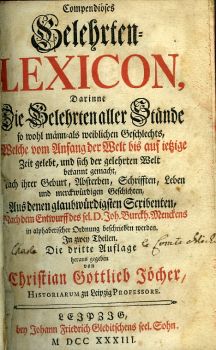 Compendiöses
Gelehrten-
LEXICON,
Darinne
Die Gelehrten aller Stände
so wohl männ- als weiblichen Geschlechts,
Welche vom Anfang der Welt bis auf ietzige
Zeit gelebt, und sich der gelehrten Welt
bekannt gemacht,
Nach ihrer Geburt, Absterben, Schrifften, Leben
und merckwürdigen Geschichten,
Aus denen glaubwürdigsten Scribenten,
Nach dem Entwurff des sel. D. Joh. Burckh. Menckens
in alphabetischer Ordnung beschrieben werden.
In zwey Theilen.
Die dritte Auflage
heraus gegeben
von
Christian Gottlieb Jöcher,
HISTORIARUM zu Leipzig PROFESSORE.
LEIPZIG,
bey Johann Friedrich Gleditschens seel. Sohn.
M DCC XXXIII.